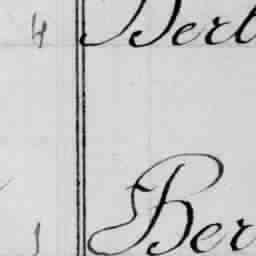 4 Bert
1 Ber